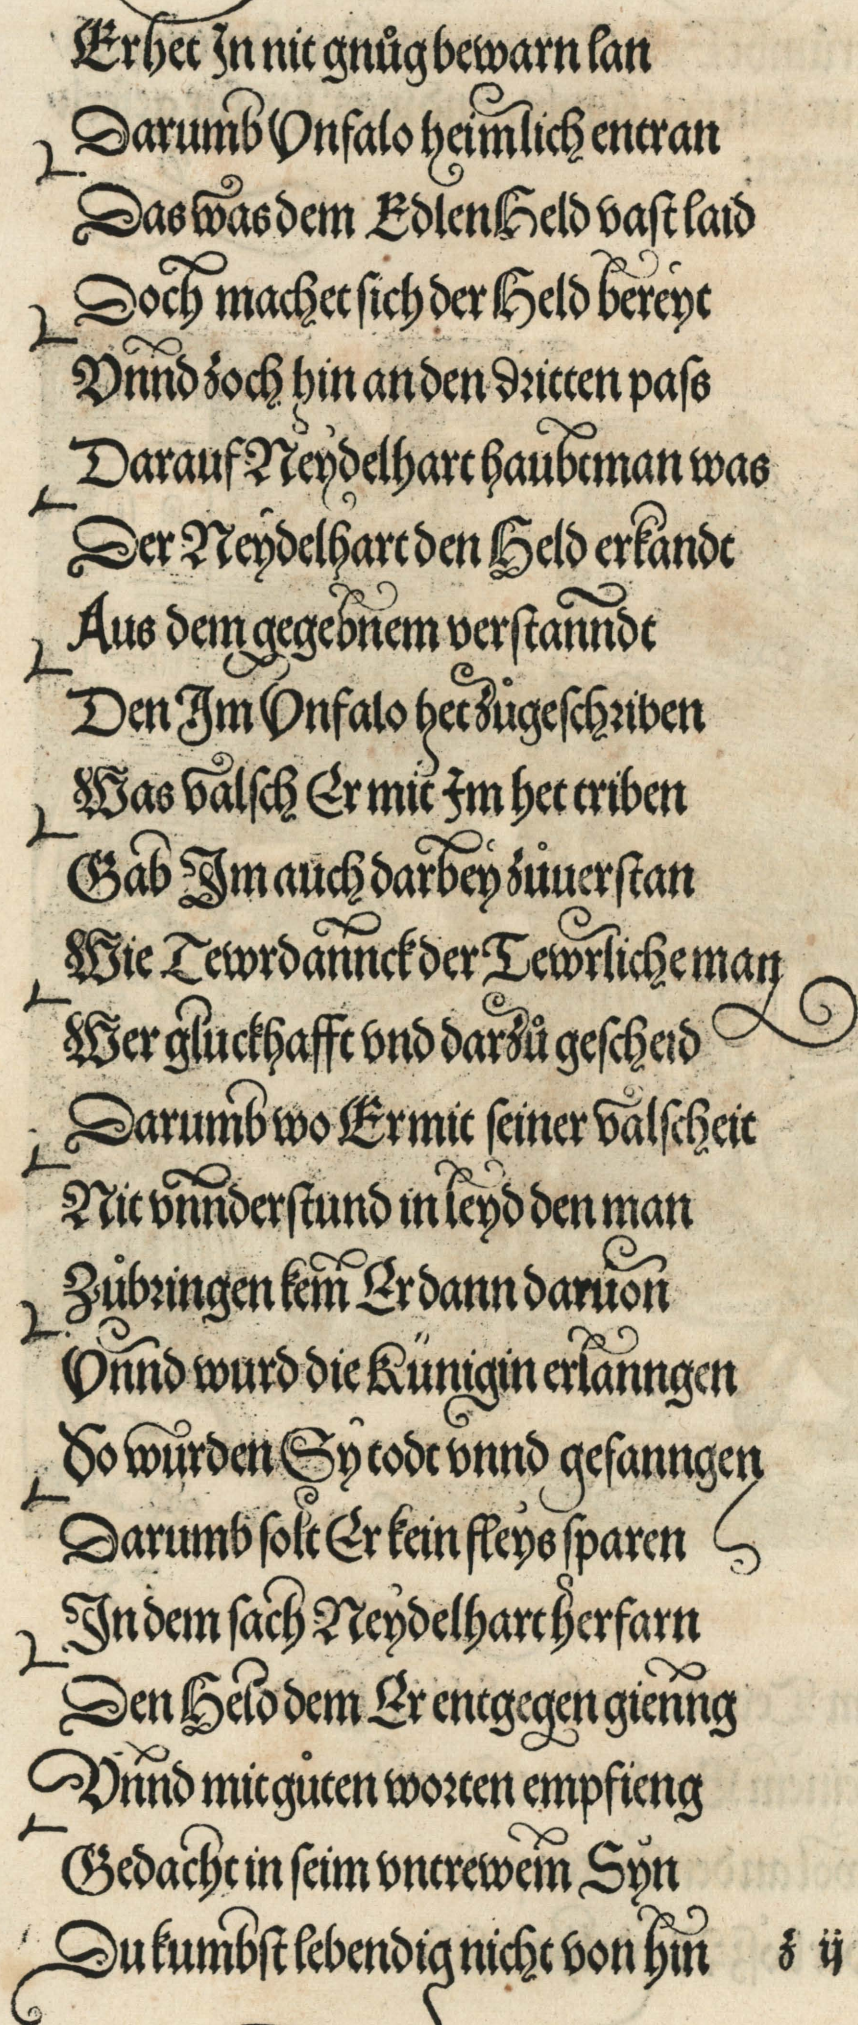 Er het In nit gnůg bewarn lan
Darumb Vnfalo heimlich entran
Das was dem Edlen Held vast laid
Doch machet sich der Held bereyt
Vnnd zoch hin an den dritten pass
Darauf Neydelhart haubtman was
Der Neydelhart den Held erkandt
Aus dem gegebnem verstanndt
Den Im Vnfalo het zůgeschriben
Was valsch Er mit Im het triben
Gab Im auch darbey zůuerstan
Wie Tewrdannck der Tewrliche man
Wer gluckhafft vnd darzů gescheid
Darumb wo Er mit seiner valscheit
Nit vnnderstund in leyd den man
Zůbringen kem Er dann daruon
Vnnd wurd die Künigin erlanngen
So wurden Sy todt vnnd gefanngen
Darumb solt Er kein fleys sparen
In dem sach Neydelhart herfarn
Den Held dem Er entgegen gienng
Vnnd mit gůten worten empfieng
Gedacht in seim vntrewem Syn
Du kumbst lebendig nicht von hin
z ij